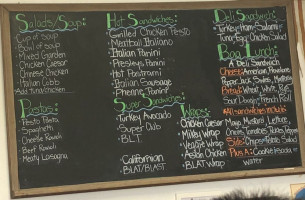 Salads/Soup:
Cup of Soup
Bowl of Soup
Mixed Garden
Chicken Caesar
Chinese Chicken
Italian Cobb
Add tuna/chicken
Pastas:
Pesto Penne
Spaghetti
Cheese Ravioli
Beef Ravioli
Meaty Lasagna
Hot Sandwiches:
Grilled Chicken Pesto
Meatball Italiano
Italian Panini
Presley's Panini
Hot Pastrami
Italian Sausage
Panini
Super Sandwiches:
Turkey Avocado
Super Club
B.L.T.
Californian
BLAT/BLAST
Wraps:
Chicken Caesar
Milky Wrap
Veggie Wrap
Asian Chicken
BLAT Wrap
Deli Sandwich:
Turkey Ham Salami
Tuna/Egg/Chicken Salad
Bag Lunch:
A Deli Sandwich
Cheese: American, Provolone
Pepper Jack, Swiss, Cheddar
Bread: Wheat, White, Rye
Sour Dough, French Roll
All sandwiches include
Mayo, Mustard, Lettuce,
Onions, Tomatoes, Pickles
Side: Chips, Potato Salad
Plus A: Cookie, Soda or
Water